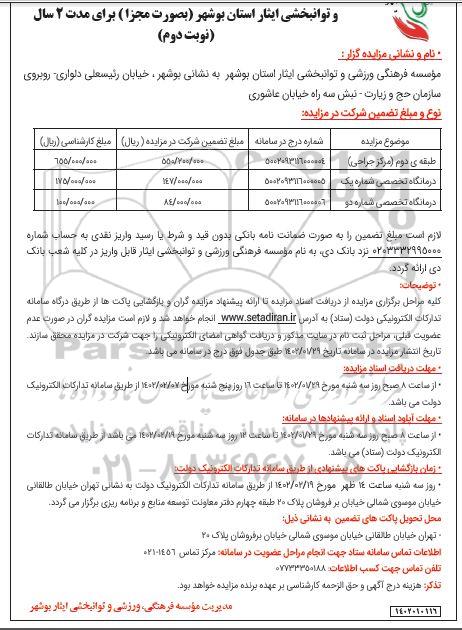 و توانبخشی ایثار استان بوشهر (بصورت مجزا) برای مدت ۲ سال
(نوبت دوم)
• نام و نشانی مزایده گزار :
مؤسسه فرهنگی ورزشی و توانبخشی ایثار استان بوشهر به نشانی بوشهر ، خیابان رئیسعلی دلواری- روبروی
سازمان حج و زیارت - نبش سه راه خیابان عاشوری
نوع و مبلغ تضمین شرکت در مزایده:
موضوع مزایده شماره درج در سامانه مبلغ تضمین شرکت در مزایده ( ریال) مبلغ کارشناسی (ریال)
طبقه ی دوم (مرکز جراحی) ۵۰۰۲۰۹۳۱۱۶۰۰۰۰۰۴ ۵۵۰/۲۰۰/۰۰۰ ۶۵۵/۰۰۰/۰۰۰
درمانگاه تخصصی شماره یک ۵۰۰۲۰۹۳۱۱۶۰۰۰۰۰۵ ۱۴۷/۰۰۰/۰۰۰ ۱۷۵/۰۰۰/۰۰۰
درمانگاه تخصصی شماره دو ۵۰۰۲۰۹۳۱۱۶۰۰۰۰۰۶ ۸۴/۰۰۰/۰۰۰ ۱۰۰/۰۰۰/۰۰۰
لازم است مبلغ تضمین را به صورت ضمانت نامه بانکی بدون قید و شرط یا رسید واریز نقدی به حساب شماره
۰۲۰۳۳۳۲۹۹۵۰۰۰ نزد بانک دی، به نام مؤسسه فرهنگی ورزشی و توانبخشی ایثار قابل واریز در کلیه شعب بانک
دی ارائه گردد.
• توضیحات:
کلیه مراحل برگزاری مزایده از دریافت اسناد مزایده تا ارائه پیشنهاد مزایده گران و بازگشایی پاکت ها از طریق درگاه سامانه
تدارکات الکترونیکی دولت (ستاد) به آدرس www.setadiran.ir انجام خواهد شد و لازم است مزایده گران در صورت عدم
عضویت قبلی، مراحل ثبت نام در سایت مذکور و دریافت گواهی امضای الکترونیکی را جهت شرکت در مزایده محقق سازند.
تاریخ انتشار مزایده در سامانه تاریخ ۱۴۰۲/۰۱/۲۹ طبق جدول فوق درج در سامانه می باشد.
• مهلت دریافت اسناد مزایده:
• از ساعت ۸ صبح روز سه شنبه مورخ ۱۴۰۲/۰۱/۲۹ تا ساعت ۱۶ روز پنج شنبه مورخ ۱۴۰۲/۰۲/۰۷ از طریق سامانه تدارکات الکترونیک
دولت می باشد.
• مهلت آپلود اسناد و ارائه پیشنهادها در سامانه:
• از ساعت ۸ صبح روز سه شنبه مورخ ۱۴۰۲/۰۱/۲۹ تا ساعت ۱۲ روز سه شنبه مورخ ۱۴۰۲/۰۲/۱۹ می باشد از طریق سامانه تدارکات
الکترونیک دولت (ستاد) می باشد.
• زمان بازگشایی پاکت های پیشنهادی از طریق سامانه تدارکات الکترونیک دولت:
• روز سه شنبه ساعت ۱۴ ظهر مورخ ۱۴۰۲/۰۲/۱۹ از طریق سامانه تدارکات الکترونیک دولت به نشانی تهران خیابان طالقانی
خیابان موسوی شمالی خیابان بر فروشان پلاک ۲۰ طبقه چهارم دفتر معاونت توسعه منابع و برنامه ریزی برگزار می گردد.
محل تحویل پاکت های تضمین به نشانی ذیل:
- تهران خیابان طالقانی خیابان موسوی شمالی خیابان برفروشان پلاک ۲۰
اطلاعات تماس سامانه ستاد جهت انجام مراحل عضویت در سامانه: مرکز تماس ۱۴۵۶-۰۲۱
تلفن تماس جهت کسب اطلاعات: ۰۷۷۳۳۳۵۰۱۸۸
تذکر: هزینه درج آگهی و حق الزحمه کارشناسی بر عهده برنده مزایده خواهد بود.
مدیریت مؤسسه فرهنگی، ورزشی و توانبخشی ایثار بوشهر
۱۴۰۲۰۱۰۱۱۶
۰۲۱-۸۸۳۴۹۶۷۰-۵